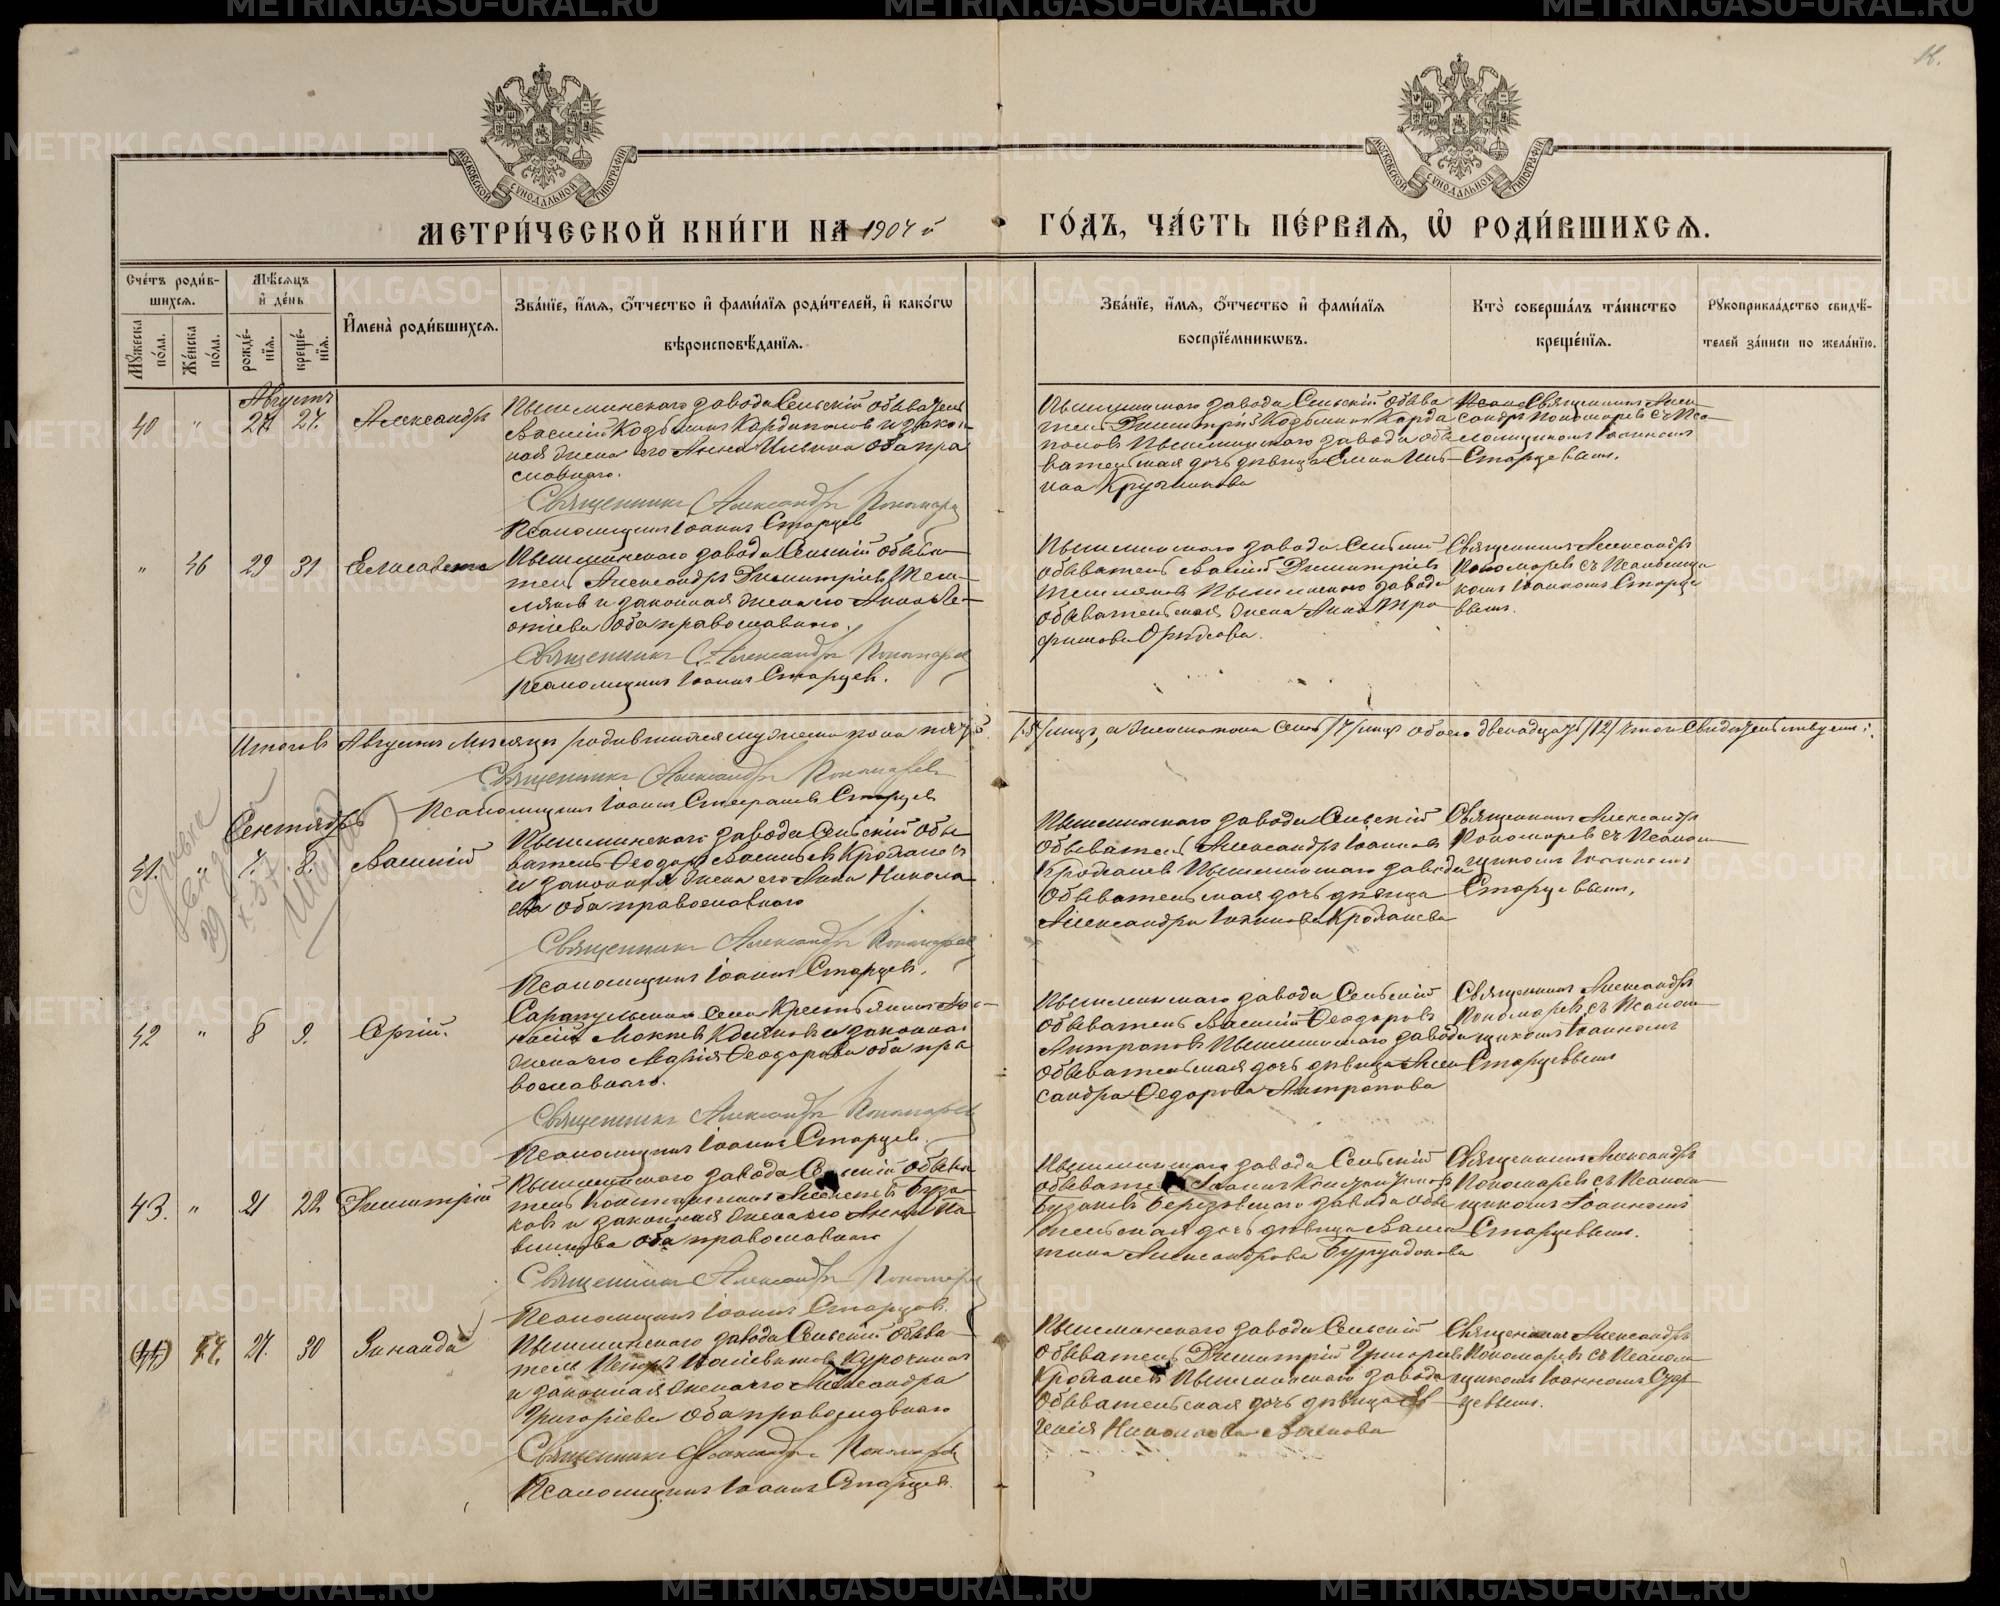 МЕТРИ́ЧЕСКОЙ КНИ́ГИ НА 1904 й ГО́ДЪ, ЧА́СТЬ ПЕ́РВАѦ, Ѡ҆ РОДИ́ВШИХСѦ.
МОСКОВСКОЙ СѴНОДАЛЬНОЙ ТИПОГРАФІИ
МОСКОВСКОЙ СѴНОДАЛЬНОЙ ТИПОГРАФІИ
Сче́тъ роди́в-
шихсѧ.
Мꙋжеска по́ла.
Же́нска по́ла.
Мѣ́сѧцъ
и҆ де́нь
рожде́-нїѧ.
креще́-нїѧ.
И҆мена̀ роди́вшихсѧ.
Зва́нїе, и҆́мѧ, ѻ҆́тчество и҆ фами́лїѧ роди́телей, и҆ како́гѡ
вѣроисповѣ́данїѧ.
Зва́нїе, и҆́мѧ, ѻ҆́тчество и҆ фами́лїѧ
воспрїе́мникѡвъ.
Кто̀ соверша́лъ та́инство
креще́нїѧ.
Рꙋкоприкла́дство свидѣ́-
телей за́писи по жела́нїю.
Августъ
40 " 27. 27. Александръ
Пышминскаго завода Сельскій обыватель
Василій Козьминъ Кардаполовъ и закон-
ная жена его Анна Ильина оба пра
славнаго.
Священникъ Александръ Пономарев
Псаломщикъ Іоаннъ Старцев
Пышминскаго завода Сельскій обыва
тель Димитрій Козьминъ Карда
половъ Пышминскаго завода обы
вательская дочь дѣвица Елена Иль-
ина
Священникъ Алек-
сандръ Пономаревъ съ Пса
ломщикомъ Іоанномъ
Старцевымъ.
" 46 29 31 Елисавета
Пышминскаго завода Сельскій обыва-
тель Александръ Димитріевъ
и законная жена его Анна
оба православнаго.
Священникъ Александръ Пономарев
Псаломщикъ Іоаннъ Старцев.
Пышминскаго завода Сельскій
обыватель Василій Димитріевъ
Пышминскаго завода
обывательская жена Анна Тро
фимова
Священникъ Александръ
Пономаревъ съ Псаломщи
комъ Іоанномъ Старце
вымъ.
Итого въ Августѣ Мѣсяцѣ родившихся мужеска пола пять
/5/ лицъ, а женска пола семь /7/ лицъ обоего двенадцать /12/ в томъ Свидетельствуемъ:
Священникъ Александръ Пономарев
Псаломщикъ Іоаннъ Старцев
Сентябрь
41. " 7. 8. Василій
Пышминскаго завода Сельскій обы
ватель Ѳеодоръ Васильевъ
и законная жена его Анна Никола
ева оба православнаго
Священникъ Александръ Пономарев
Псаломщикъ Іоаннъ Старцев.
Пышминскаго завода Сельскій
обыватель Александръ Іоанновъ
Пышминскаго завода
обывательская дочь дѣвица
Александра Іоаннова
Священникъ Александръ
Пономаревъ съ Псалом-
щикомъ Іоанномъ
Старцевымъ.
42 " 8 9. Сергій.
Села Крестьянинъ
и законная
жена его Марія Ѳеодорова оба пра
вославнаго.
Священникъ Александръ Пономарев
Псаломщикъ Іоаннъ Старцев.
Пышминскаго завода Сельскій
обыватель Василій Ѳеодоровъ
Антроповъ Пышминскаго завода
обывательская дочь дѣвица Алек
сандра Ѳедорова Антропова
Священникъ Александръ
Пономаревъ съ Псалом-
щикомъ Іоанномъ
Старцевымъ
43. " 21 22 Димитрій
Пышминскаго завода Сельскій обыва
тель Константинъ Бура-
ковъ и законная жена его
оба православнаго
Священникъ Александръ Пономарев
Псаломщикъ Іоаннъ Старцов.
Пышминскаго завода Сельскій
обыватель Іоаннъ
Березовскаго завода обы
тельская дочь дѣвица Вален
тина Александрова Бурундукова
Священникъ Александръ
Пономаревъ съ Псалом-
щикомъ Іоанномъ
Старцевымъ.
(44) 47. 27. 30 Зинаида
Пышминскаго завода Сельскій обыва-
тель Петръ Курочкинъ
и законная жена его Александра
Григоріева оба православнаго
Священникъ Александръ Пономарев
Псаломщикъ Іоаннъ Старцев.
Пышминскаго завода Сельскій
обыватель Димитрій Григорьевъ
Пышминскаго завода
обывательская дочь дѣвица Ев-
генія Николаева
Священникъ Александръ
Пономаревъ съ Псалом-
щикомъ Іоанномъ Стар
цевымъ.
METRIKI.GASO-URAL.RU